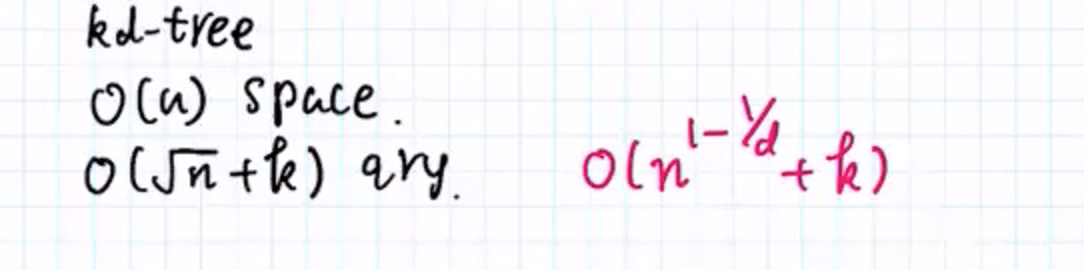 kd-tree
O(n) space.
O(√n + k) qry. O(n^{1-1/d} + k)